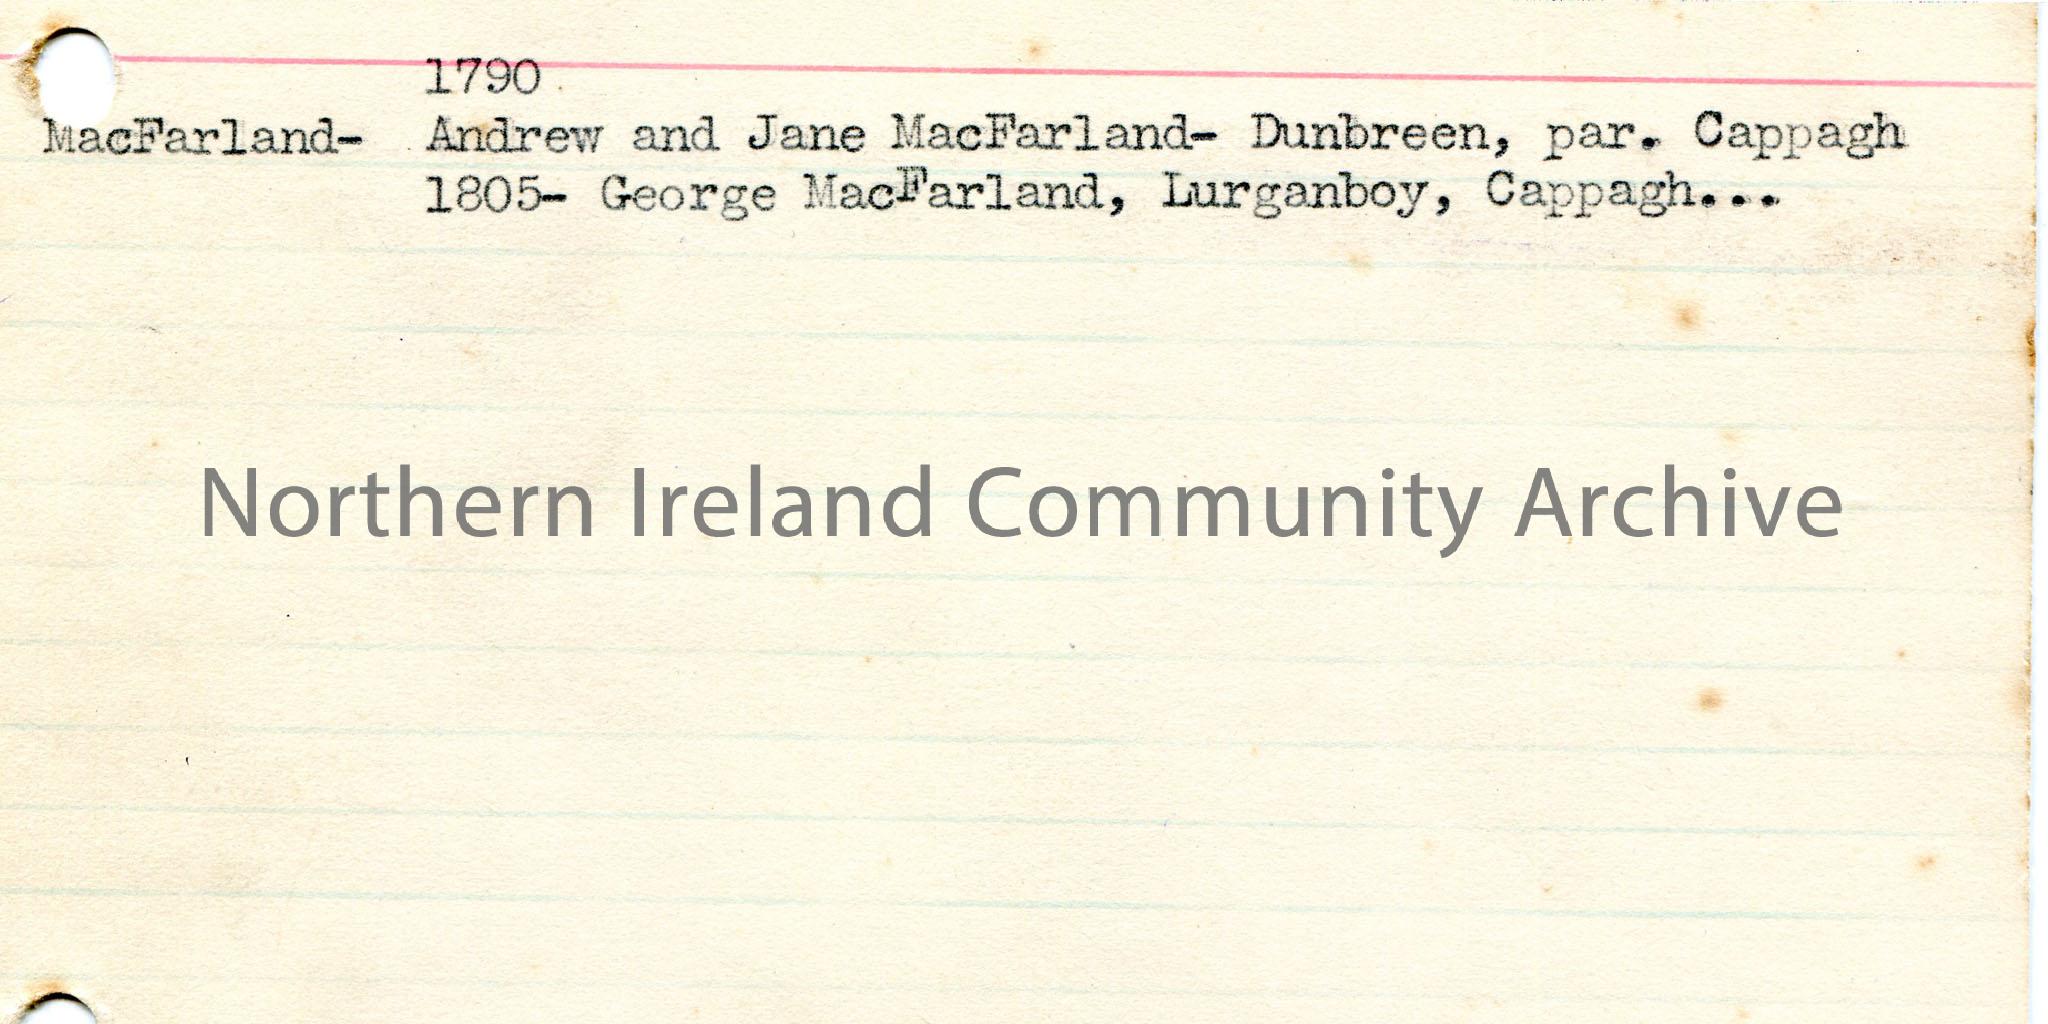 1790
MacFarland- Andrew and Jane MacFarland- Dunbreen, par. Cappagh
1805- George MacFarland, Lurganboy, Cappagh...
Northern Ireland Community Archive